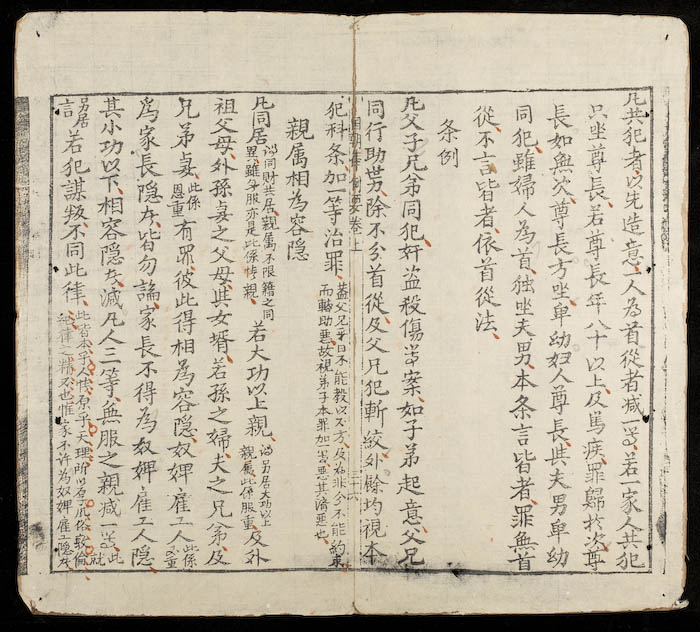 凡共犯者以先造意一人為首從者减一等若一家人共犯
只坐尊長若尊長年八十以上及篤疾罪歸於次尊
長如無次尊長方坐卑幼妇人尊長與夫男卑幼
同犯雖婦人為首独坐夫男本条言皆者罪無首
從不言皆者依首從法
条例
凡父子兄弟同犯奸盗殺傷等案如子弟起意父兄
同行助势除不分首從及父兄犯斬絞外餘均視本
國朝律例撮要卷上
犯科条加一等治罪盖父兄平日不能教以义方及為非分不能約束而轉助悪故視弟子本罪加一等悪其济悪也
親属相為容隠
凡同居謂同財共居親属不限籍之同異雖無服亦是此係情親若大功以上親謂另居大功以上親属此係服重及外
祖父母外孫妻之父母與女壻若孫之婦夫之兄弟及
兄弟妻此係恩重有罪彼此得相為容隠奴婢雇工人此係义重
為家長隠者皆勿論家長不得為奴婢雇工人隠
其小功以下相容隠者减凡人三等無服之親减一等此就
另居言若犯謀叛不同此律此皆本乎人情原乎天理所以存風俗敦倫紀律之精义也惟家不许為奴婢雇工隠者